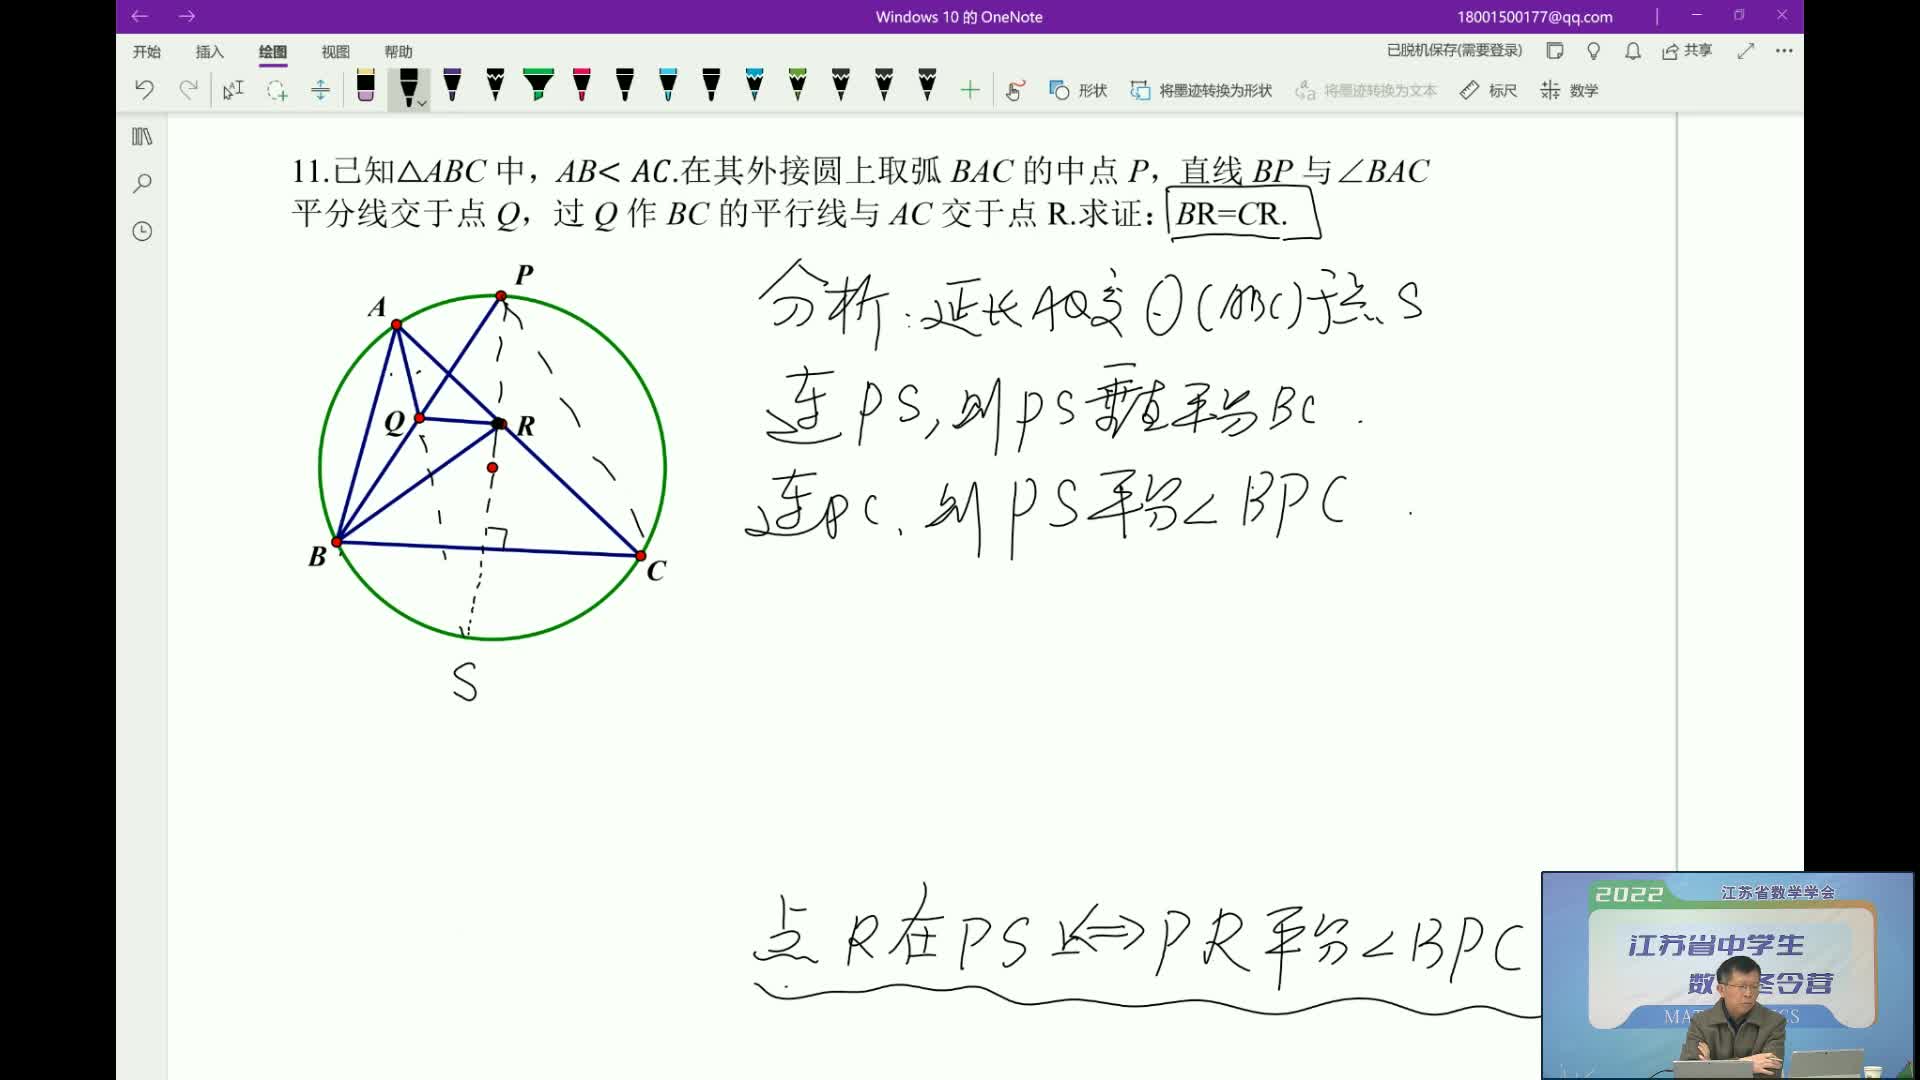 Windows 10 的 OneNote
18001500177@qq.com
开始 插入 绘图 视图 帮助
已脱机保存(需要登录) 共享
形状 将墨迹转换为形状 将墨迹转换为文本 标尺 数学
11.已知△ABC 中，AB< AC.在其外接圆上取弧 BAC 的中点 P，直线 BP 与∠BAC
平分线交于点 Q，过 Q 作 BC 的平行线与 AC 交于点 R.求证：BR=CR.
P
A
Q
R
B
C
S
分析：延长AQ交⊙(ABC)于点S
连PS,则PS垂直平分BC.
连PC,则PS平分∠BPC.
点R在PS上⇔PR平分∠BPC
2022 江苏省数学学会
江苏省中学生